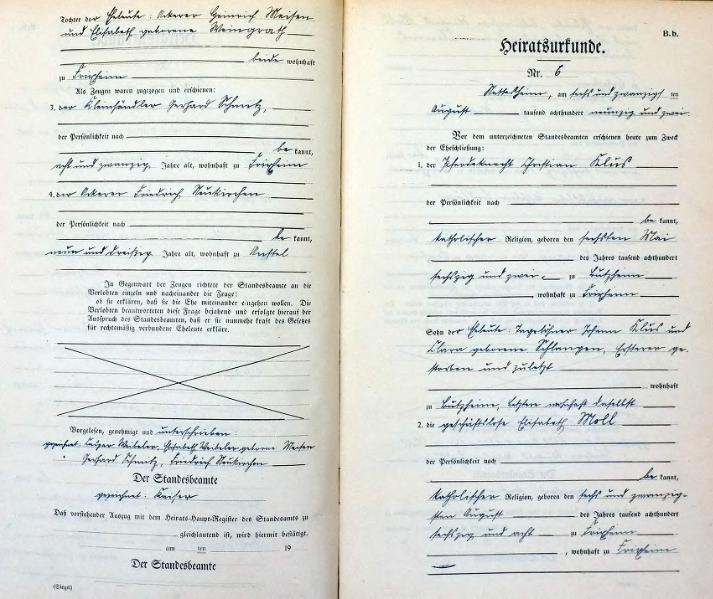 Tochter der Eheleute: Ackerer Heinrich Meisen
und Elisabeth geborene Weingrath
beide wohnhaft
zu Frixheim
Als Zeugen waren zugezogen und erschienen:
3. der Kleinhändler Gerhard Schmitz,
der Persönlichkeit nach
be kannt,
acht und zwanzig Jahre alt, wohnhaft zu Frixheim
4. der Ackerer Friedrich Neukirchen
der Persönlichkeit nach
be kannt,
neun und dreißig Jahre alt, wohnhaft zu Anstel
In Gegenwart der Zeugen richtete der Standesbeamte an die
Verlobten einzeln und nacheinander die Frage:
ob sie erklären, daß sie die Ehe miteinander eingehen wollen. Die
Verlobten beantworteten diese Frage bejahend und erfolgte hierauf der
Ausspruch des Standesbeamten, daß er sie nunmehr kraft des Gesetzes
für rechtmäßig verbundene Eheleute erkläre.
Vorgelesen, genehmigt und unterschrieben:
gezeichnet: Weiteler, Elisabeth Weiteler geborene Meisen
" Gerhard Schmitz, Friedrich Neukirchen
Der Standesbeamte
gezeichnet: Kaiser
Daß vorstehender Auszug mit dem Heirats-Haupt-Register des Standesamts zu
gleichlautend ist, wird hiermit bestätigt.
am ten 19
Der Standesbeamte
(Siegel)
B.b.
Heiratsurkunde.
Nr. 6
Nettesheim, am sechs und zwanzigs ten
August tausend achthundert neunzig und zwei
Vor dem unterzeichneten Standesbeamten erschienen heute zum Zweck
der Eheschließung:
1. der Pferdeknecht Christian Klus
der Persönlichkeit nach
be kannt,
katholischer Religion, geboren den sechsten Mai
des Jahres tausend achthundert
sechszig und zwei zu Butzheim
, wohnhaft zu Frixheim
Sohn der Eheleute: Tagelöhner Johann Klus und
Clara geborene Schlangen, Ersterer ge-
storben und zuletzt
wohnhaft
zu Butzheim, Letztere wohnhaft daselbst
2. die geschäftslose Elisabeth Moll
der Persönlichkeit nach
be kannt,
katholischer Religion, geboren den sechs und zwanzig-
sten August des Jahres tausend achthundert
sechszig und acht zu Frixheim
, wohnhaft zu Frixheim